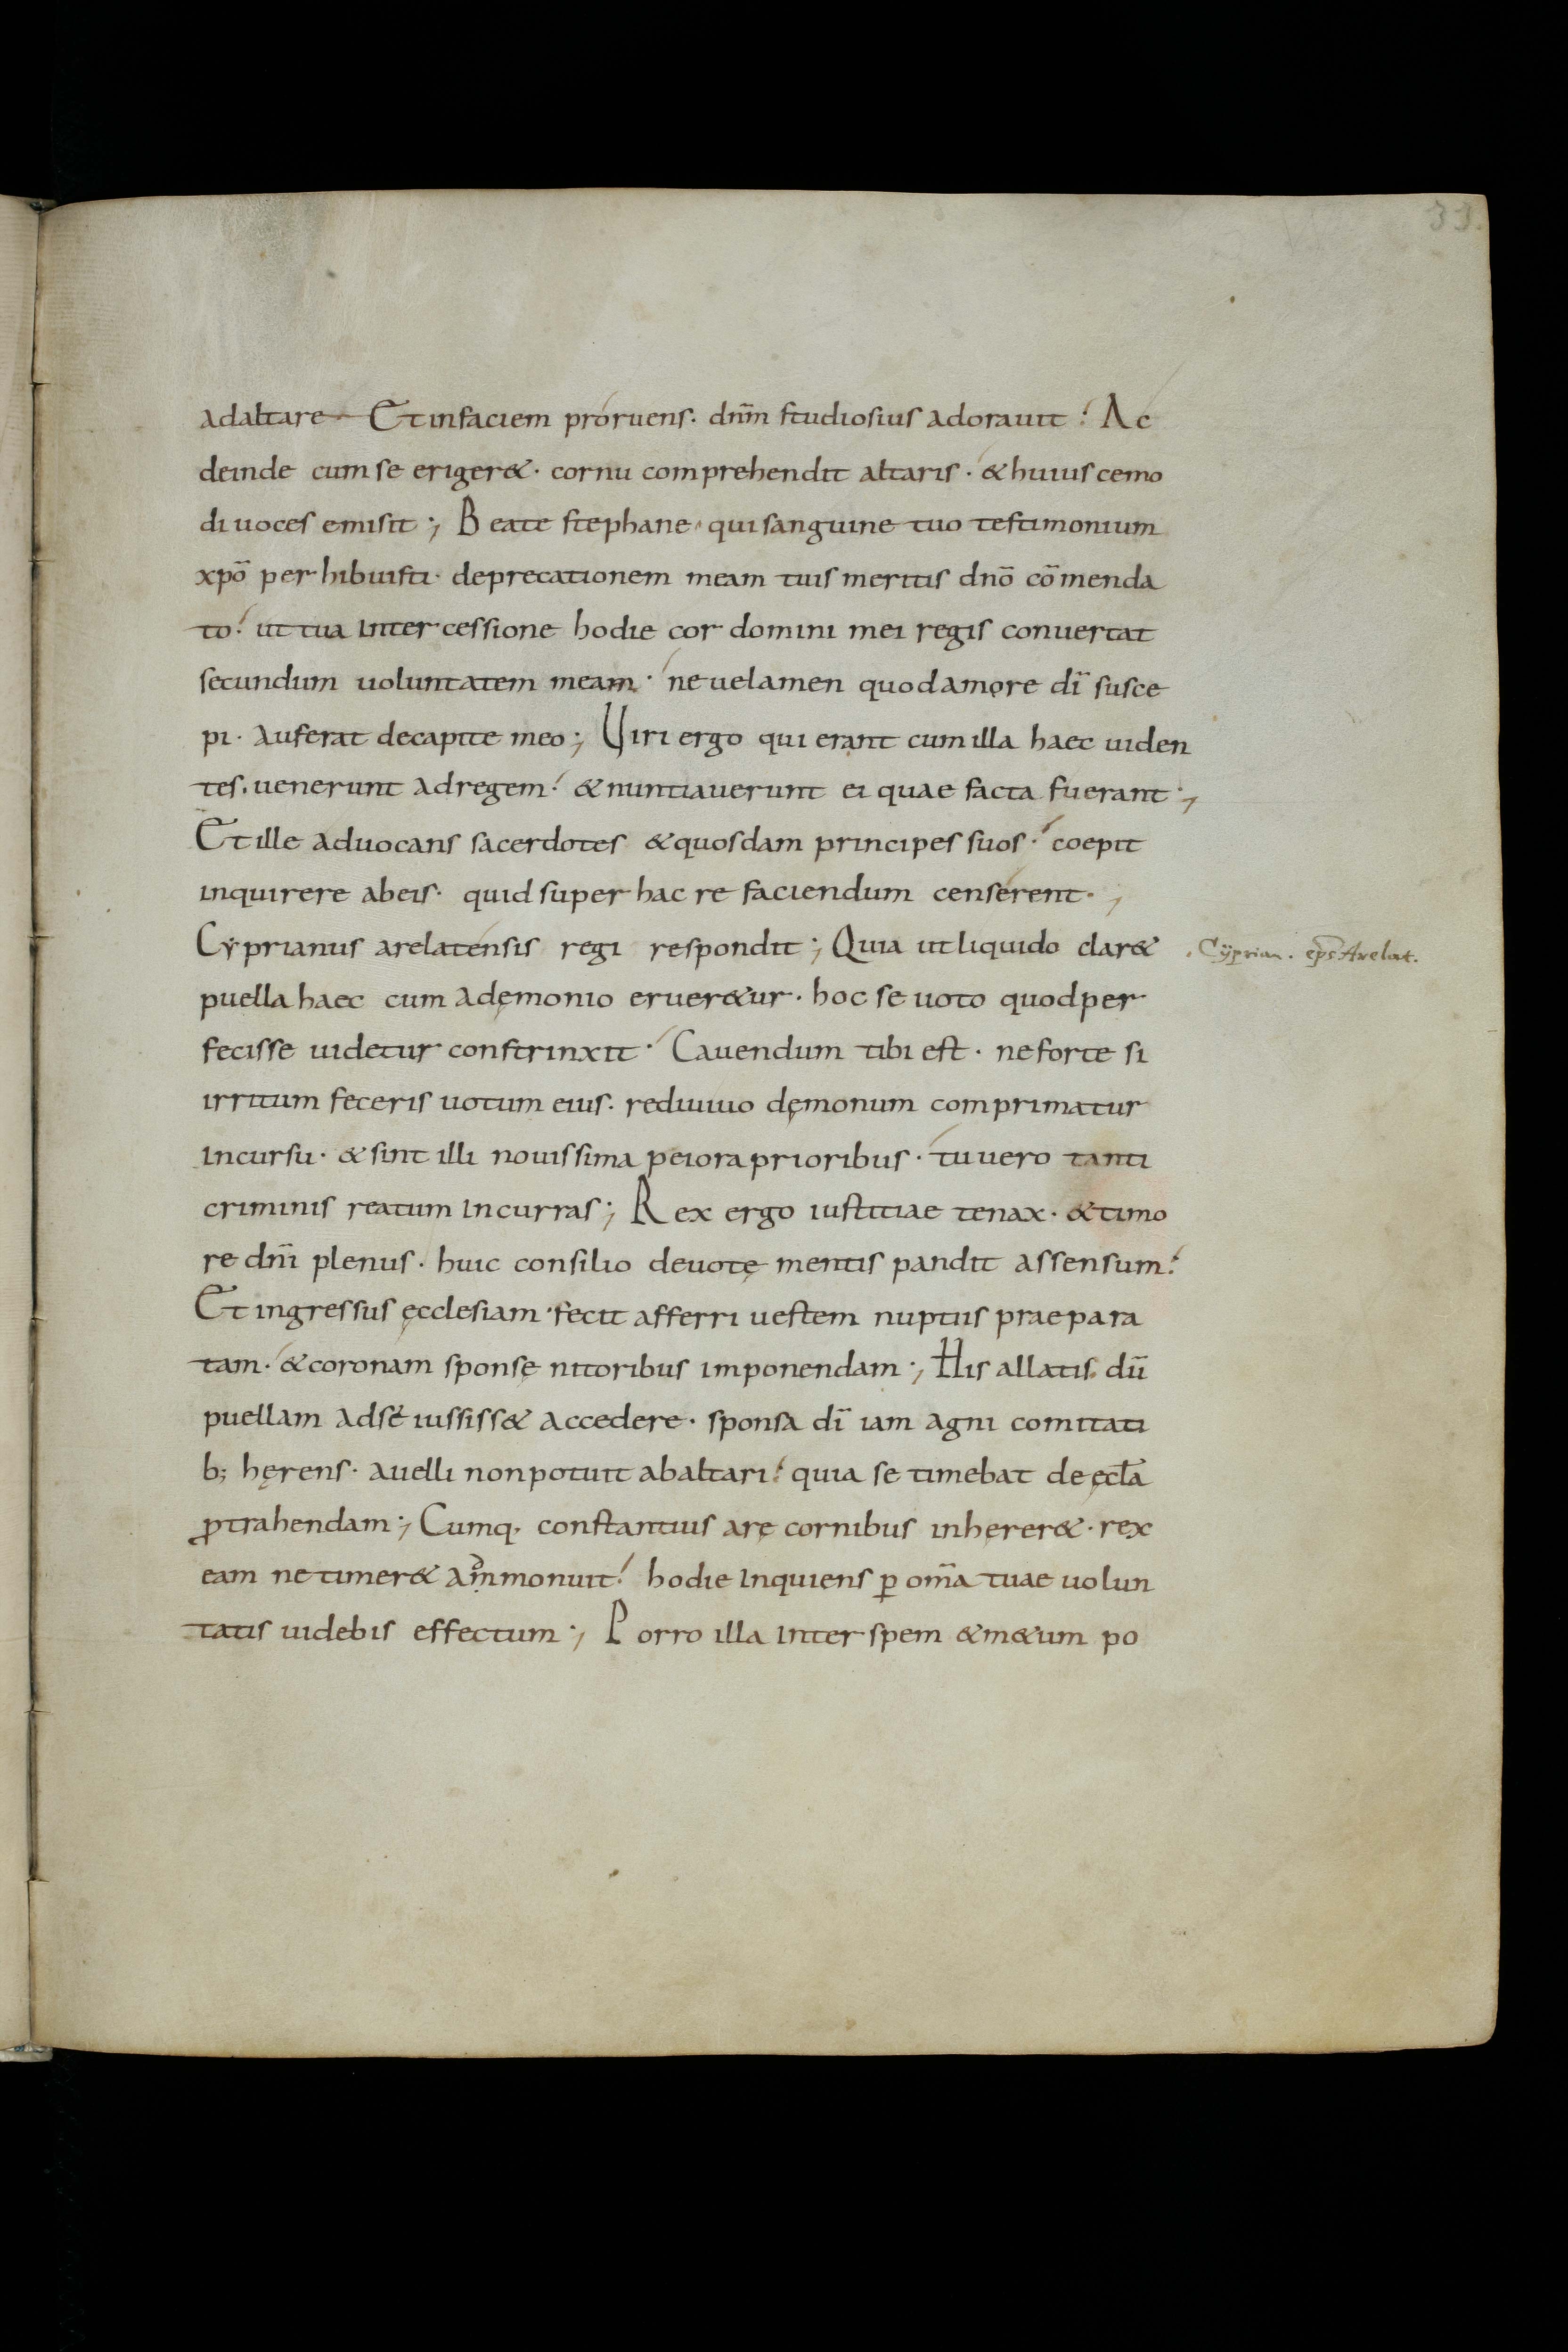 33.
ad altare Et in faciem proruens· dn̄m studiosius adorauit : Ac
deinde cum se eriger&· cornu comprehendit altaris· & huiuscemo
di uoces emisit ; Beate stephane· qui sanguine tuo testimonium
xpō perhibuisti· deprecationem meam tuis meritis dnō cōmenda
to : ut tua intercessione hodie cor domini mei regis conuertat
secundum uoluntatem meam · ne uelamen quod amore dī susce
pi· auferat de capite meo ; Uiri ergo qui erant cum illa haec uiden
tes· uenerunt ad regem : & nuntiauerunt ei quae facta fuerant ;
Et ille aduocans sacerdotes & quosdam principes suos : coepit
inquirere ab eis· quid super hac re faciendum censerent ;
Cẏprianus arelatensis regi respondit ; Quia ut liquido clar&
puella haec cum a dęmonio eruer&ur· hoc se uoto quod per
fecisse uidetur constrinxit : Cauendum tibi est· ne forte si
irritum feceris uotum eius· rediuiuo dęmonum comprimatur
incursu· & sint illi nouissima peiora prioribus· tu uero tanti
criminis reatum incurras ; Rex ergo iustitiae tenax· & timo
re dn̄i plenus· huic consilio deuotę mentis pandit assensum :
Et ingressus ęcclesiam· fecit afferri uestem nuptiis praepara
tam· & coronam sponsę nitoribus imponendam ; His allatis· dū
puellam ad se iussiss& accedere· sponsa dī iam agni comitati
b; hęrens· auelli non potuit ab altari : quia se timebat de ęcl̄a
ꝓtrahendam ; Cumq· constantius arę cornibus inhęrer&· rex
eam ne timer& aṃmonuit : hodie inquiens ꝑ om̄a tuae uolun
tatis uidebis effectum ; Porro illa inter spem & m&um po
Cÿprian. ep̄s Arelat.